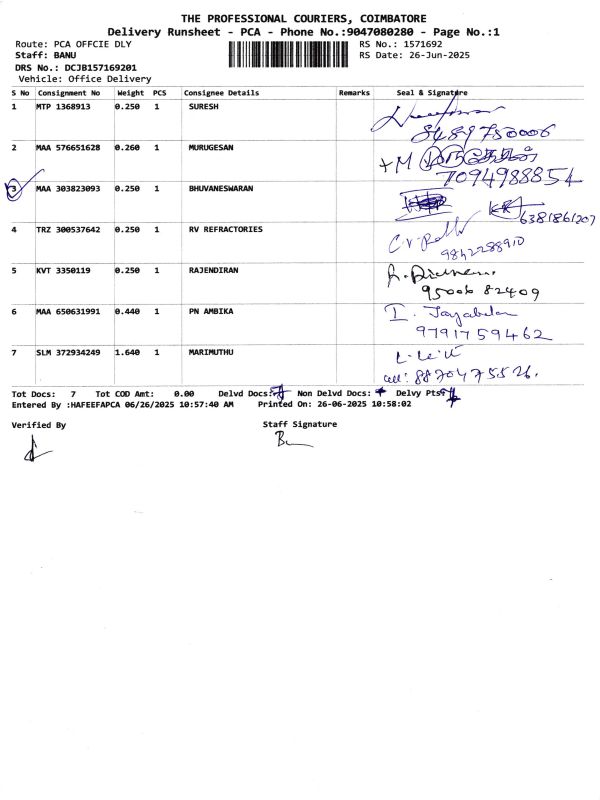 THE PROFESSIONAL COURIERS, COIMBATORE
Delivery Runsheet - PCA - Phone No.:9047080280 - Page No.:1
Route: PCA OFFCIE DLY
RS No.: 1571692
Staff: BANU
RS Date: 26-Jun-2025
DRS No.: DCJB157169201
Vehicle: Office Delivery
S No Consignment No Weight PCS Consignee Details Remarks Seal & Signature
1 MTP 1368913 0.250 1 SURESH
8489750006
2 MAA 576651628 0.260 1 MURUGESAN
7094988854
3 MAA 303823093 0.250 1 BHUVANESWARAN
6381861207
4 TRZ 300537642 0.250 1 RV REFRACTORIES
9842288910
5 KVT 3350119 0.250 1 RAJENDIRAN
95006 82409
6 MAA 650631991 0.440 1 PN AMBIKA
I. Jayabalan
9791759462
7 SLM 372934249 1.640 1 MARIMUTHU
cell: 8870475526.
Tot Docs: 7 Tot COD Amt: 0.00 Delvd Docs: Non Delvd Docs: Delvy Pts:
Entered By :HAFEEFAPCA 06/26/2025 10:57:40 AM Printed On: 26-06-2025 10:58:02
Verified By
Staff Signature